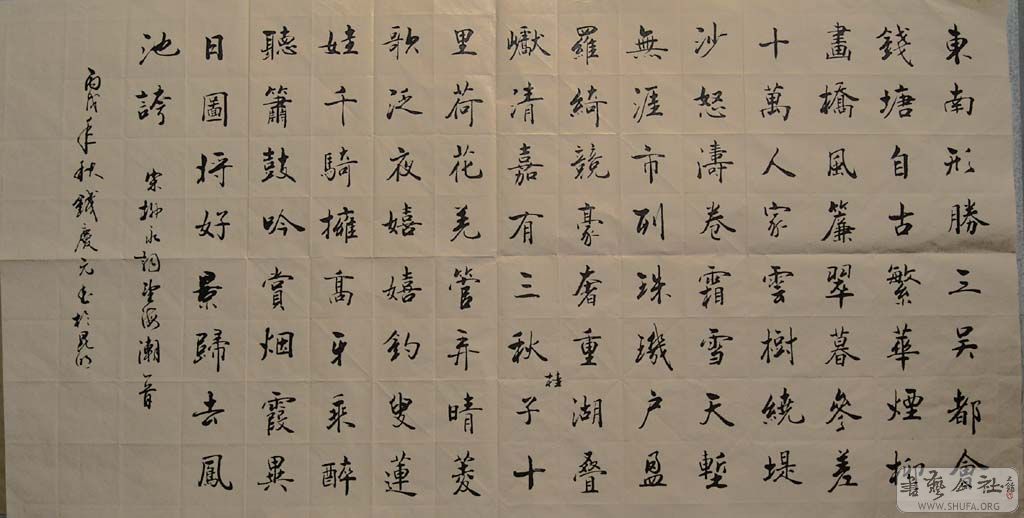 東南形勝三吳都會
錢塘自古繁華煙柳
畫橋風簾翠暮參差
十萬人家雲樹繞堤
沙怒濤卷霜雪天塹
無涯市列珠璣戶盈
羅綺競豪奢重湖叠
巘清嘉有三秋桂子十
里荷花羌管弄晴菱
歌泛夜嬉嬉釣叟蓮
娃千騎擁高牙乘醉
聽簫鼓吟賞烟霞異
日圖將好景歸去鳳
池誇
宋柳永詞望海潮一首
丙戌年秋錢慶元書於昆明
書藝公社
WWW.SHUFA.ORG